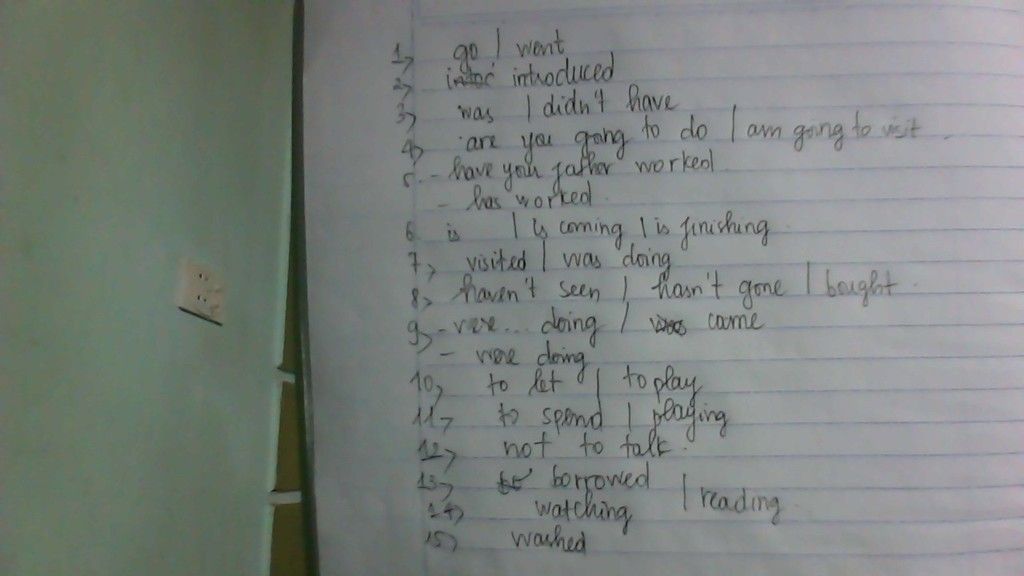 1, go / went
2, introduced
3, was / didn't have
4, are you going to do / am going to visit.
5. - have you father worked
- has worked.
6 is / is coming / is finishing.
7, visited / was doing
8, haven't seen / hasn't gone / bought.
9, - were... doing / came
- were doing
10, to let / to play
11, to spend / playing
12, not to talk.
13, borrowed
14, watching / reading
15, washed